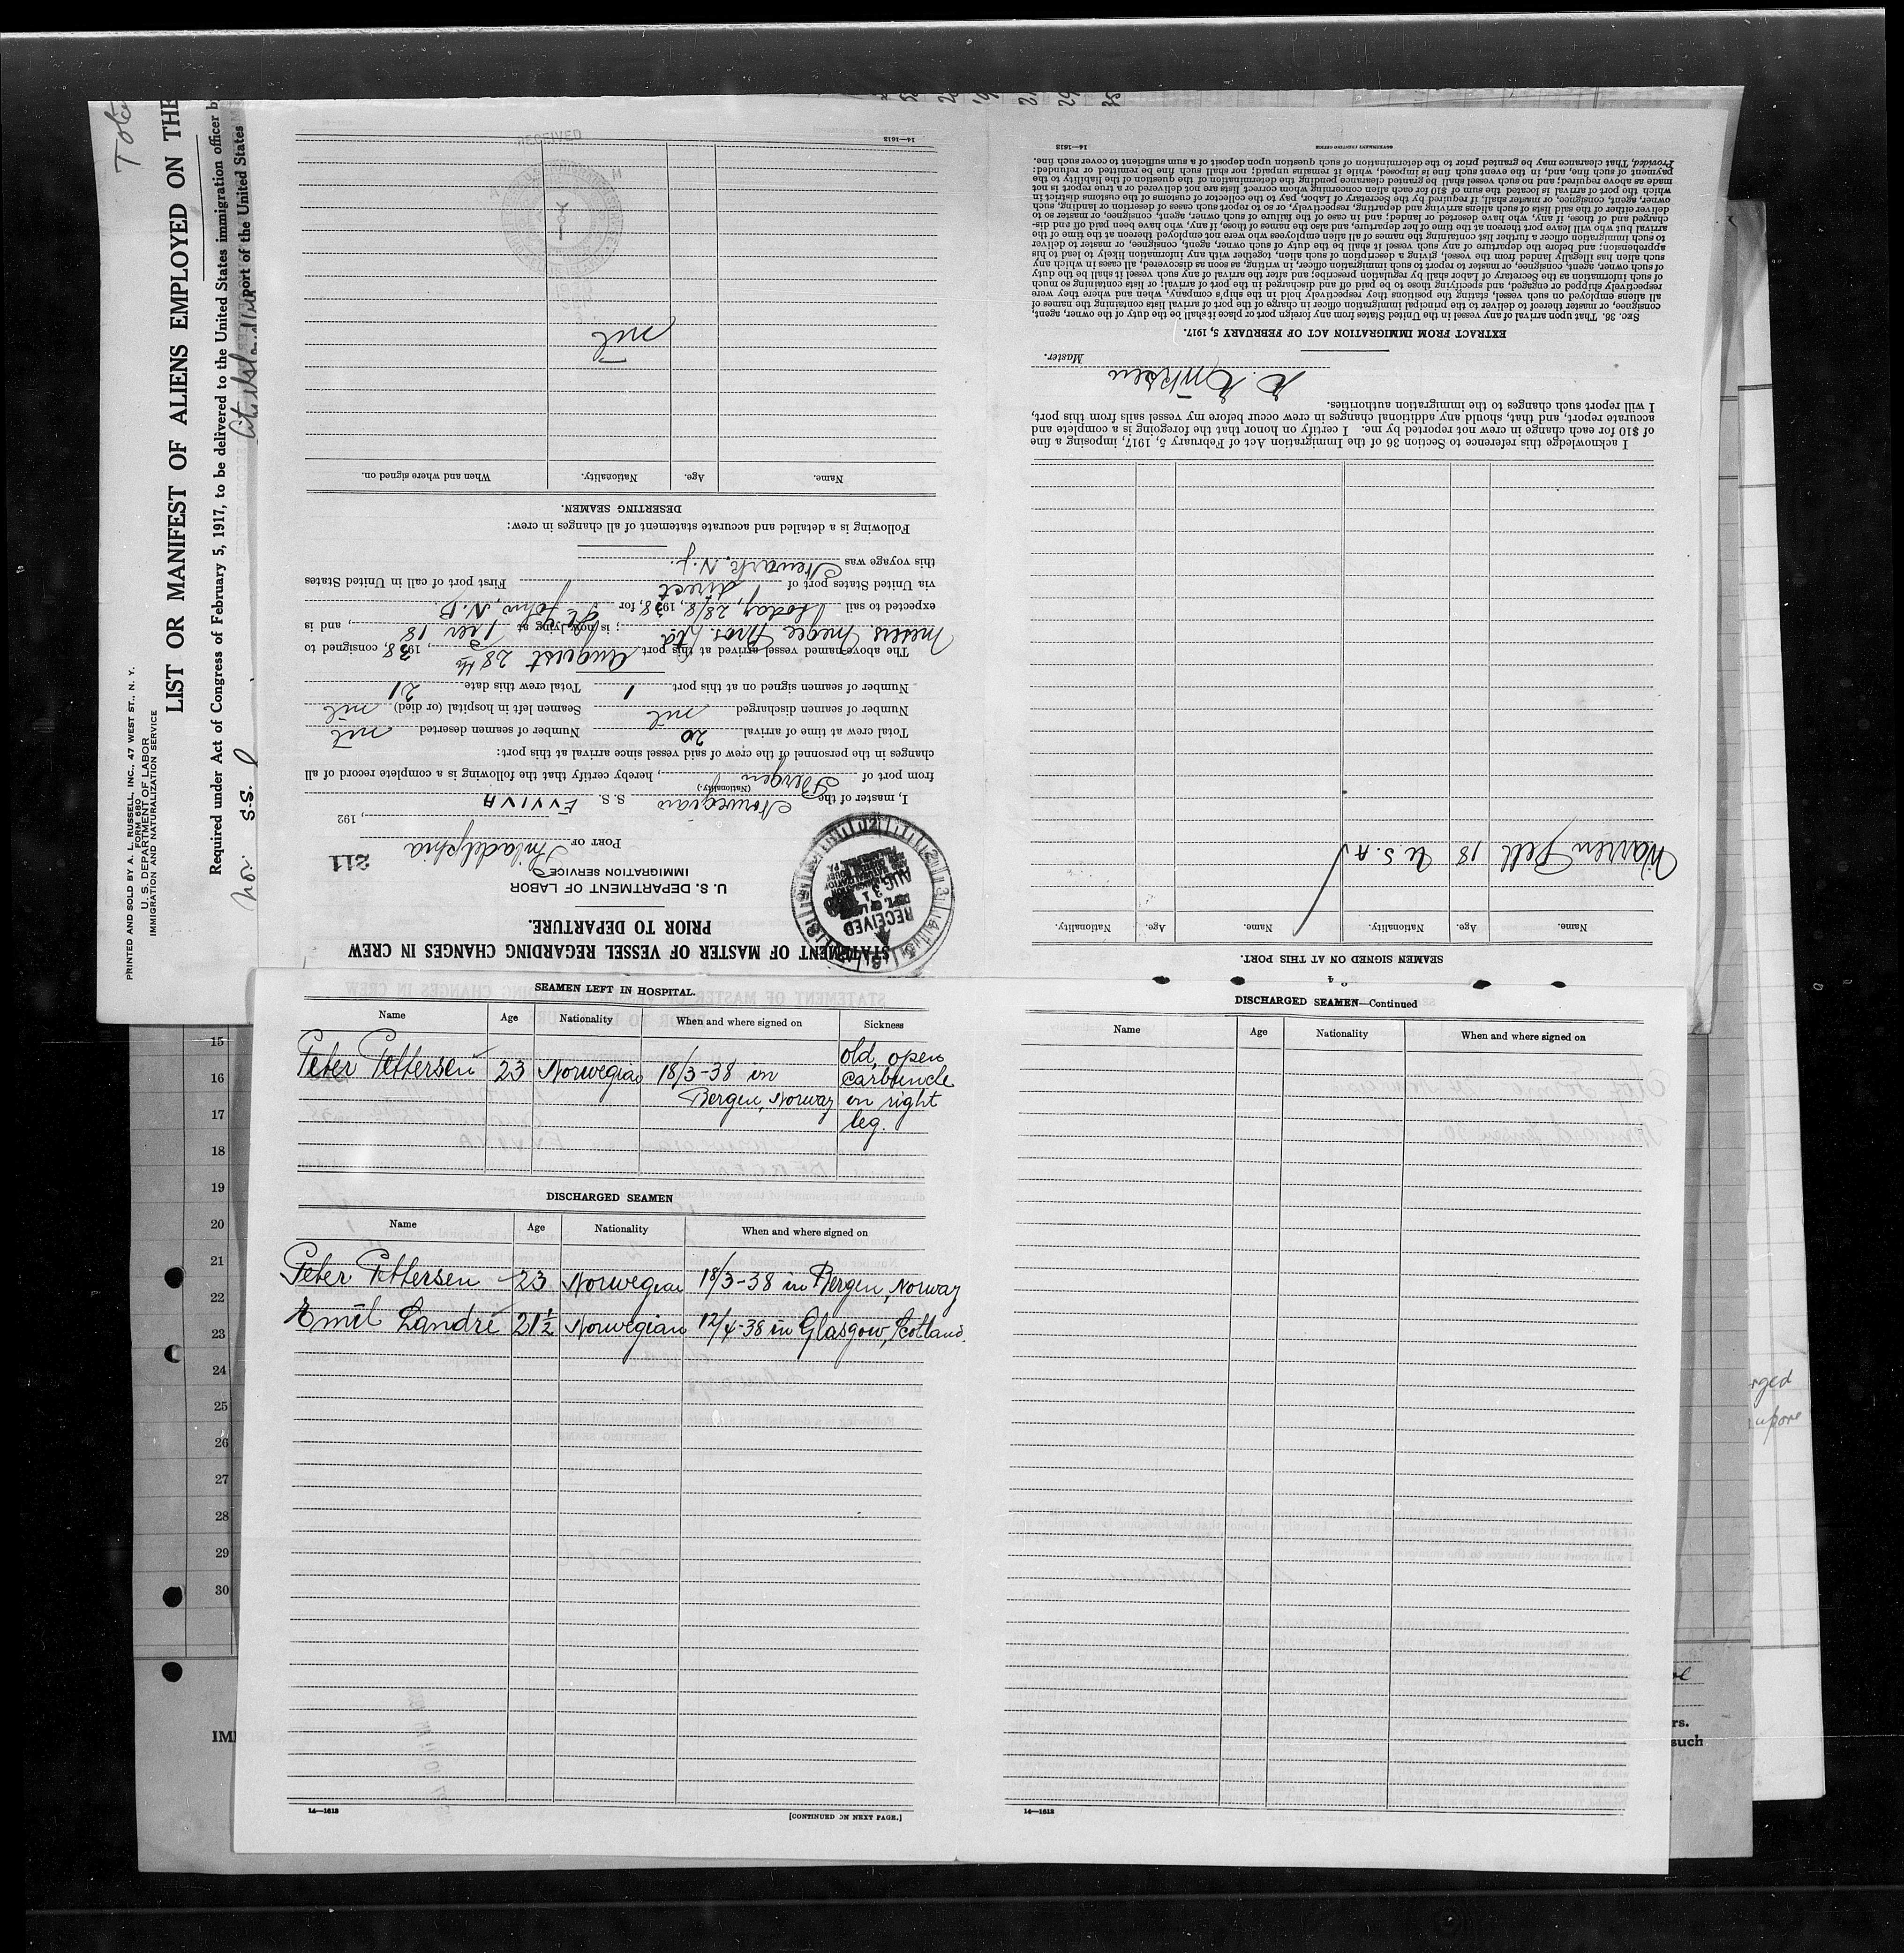 PRINTED AND SOLD BY A. L. RUSSELL, INC., 47 WEST ST., N. Y.
FORM 680
U. S. DEPARTMENT OF LABOR
IMMIGRATION AND NATURALIZATION SERVICE
LIST OR MANIFEST OF ALIENS EMPLOYED ON THE
Required under Act of Congress of February 5, 1917, to be delivered to the United States immigration officer b
port of the United States
Nor. S.S.
STATEMENT OF MASTER OF VESSEL REGARDING CHANGES IN CREW
PRIOR TO DEPARTURE.
U. S. DEPARTMENT OF LABOR
IMMIGRATION SERVICE
RECEIVED
DEPT. OF LABOR
AUG 31
211
PORT OF Philadelphia
, 192
I, master of the Norwegian S. S. EVVIVA
(Nationality)
from port of Bergen, hereby certify that the following is a complete record of all
changes in the personnel of the crew of said vessel since arrival at this port:
Total crew at time of arrival 20 Number of seamen deserted nil
Number of seamen discharged nil Seamen left in hospital (or died) nil
Number of seamen signed on at this port 1 Total crew this date 21
The above-named vessel arrived at this port August 28th, 1938, consigned to
Messrs. Magee Bros. Ltd; is now lying at Pier 18, and is
expected to sail today, 28/8, 1938, for St John, N.B.
via United States port of direct First port of call in United States
this voyage was Newark N.J.
Following is a detailed and accurate statement of all changes in crew:
DESERTING SEAMEN.
Name. Age. Nationality. When and where signed on.
nil
RECEIVED
14—1613
SEAMEN SIGNED ON AT THIS PORT.
Name. Age. Nationality. Name. Age. Nationality.
Warren Pell 18 U.S.A
I acknowledge this reference to Section 36 of the Immigration Act of February 5, 1917, imposing a fine
of $10 for each change in crew not reported by me. I certify on honor that the foregoing is a complete and
accurate report, and that, should any additional changes in crew occur before my vessel sails from this port,
I will report such changes to the immigration authorities.
Master.
EXTRACT FROM IMMIGRATION ACT OF FEBRUARY 5, 1917.
SEC. 36. That upon arrival of any vessel in the United States from any foreign port or place it shall be the duty of the owner, agent,
consignee, or master thereof to deliver to the principal immigration officer in charge of the port of arrival lists containing the names of
all aliens employed on such vessel, stating the positions they respectively hold in the ship's company, when and where they were
respectively shipped or engaged, and specifying those to be paid off and discharged in the port of arrival; or lists containing so much
of such information as the Secretary of Labor shall by regulation prescribe; and after the arrival of any such vessel it shall be the duty
of such owner, agent, consignee, or master to report to such immigration officer, in writing, as soon as discovered, all cases in which any
such alien has illegally landed from the vessel, giving a description of such alien, together with any information likely to lead to his
apprehension; and before the departure of any such vessel it shall be the duty of such owner, agent, consignee, or master to deliver
to such immigration officer a further list containing the names of all alien employees who were not employed thereon at the time of the
arrival but who will leave port thereon at the time of her departure, and also the names of those, if any, who have been paid off and dis-
charged and of those, if any, who have deserted or landed; and in case of the failure of such owner, agent, consignee, or master so to
deliver either of the said lists of such aliens arriving and departing, respectively, or so to report such cases of desertion or landing, such
owner, agent, consignee, or master, shall, if required by the Secretary of Labor, pay to the collector of customs of the customs district in
which the port of arrival is located the sum of $10 for each alien concerning whom correct lists are not delivered or a true report is not
made as above required; and no such vessel shall be granted clearance pending the determination of the question of the liability to the
payment of such fine, and, in the event such fine is imposed, while it remains unpaid; nor shall such fine be remitted or refunded:
Provided, That clearance may be granted prior to the determination of such question upon deposit of a sum sufficient to cover such fine.
GOVERNMENT PRINTING OFFICE
14—1613
SEAMEN LEFT IN HOSPITAL.
Name Age Nationality When and where signed on Sickness
Peter Pettersen 23 Norwegian 18/3-38 in old, open
Bergen, Norway carbuncle
on right
leg.
DISCHARGED SEAMEN
Name Age Nationality When and where signed on
Peter Pettersen 23 Norwegian 18/3-38 in Bergen, Norway
Emil Landre 21½ Norwegian 12/4-38 in Glasgow, Scotland.
14—1613
[CONTINUED ON NEXT PAGE.]
DISCHARGED SEAMEN—Continued
Name Age Nationality When and where signed on
14—1613
15
16
17
18
19
20
21
22
23
24
25
26
27
28
29
30
IM
rged
rs.
such